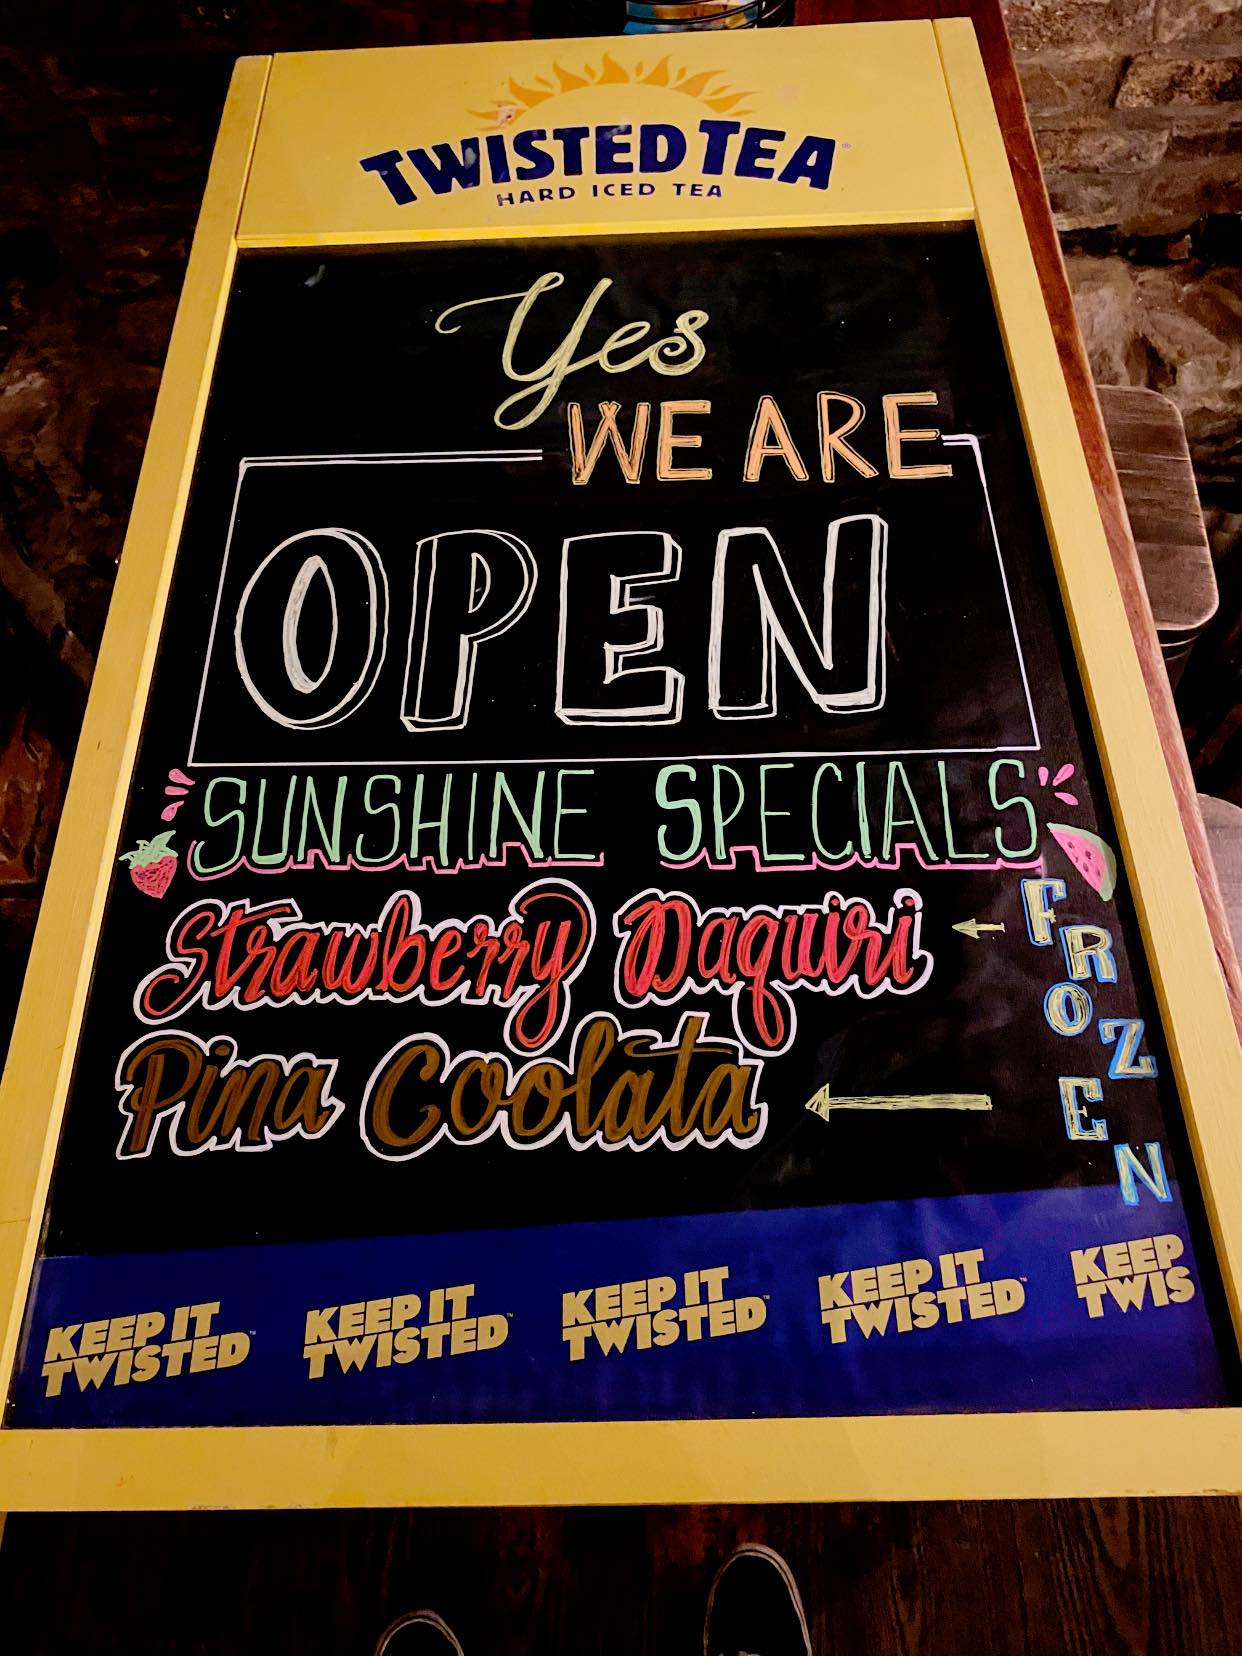 TWISTED TEA
HARD ICED TEA
Yes
WE ARE
OPEN
SUNSHINE SPECIALS
Strawberry Daquiri
Pina Coolata
FROZEN
KEEP IT TWISTED™
KEEP IT TWISTED™
KEEP IT TWISTED™
KEEP IT TWISTED™
KEEP TWIS